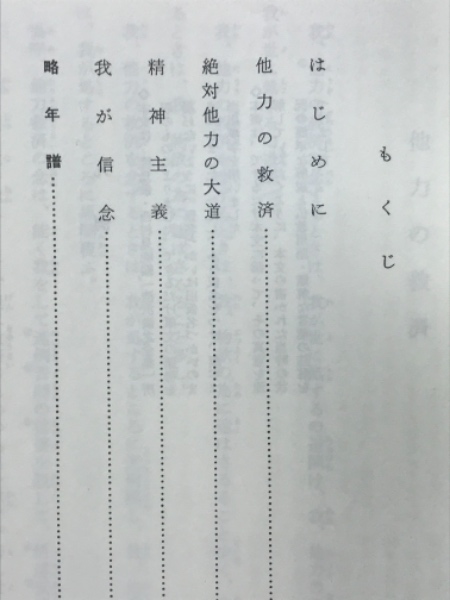 もくじ
はじめに
他力の救済
絶対他力の大道
精神主義
我が信念
略年譜